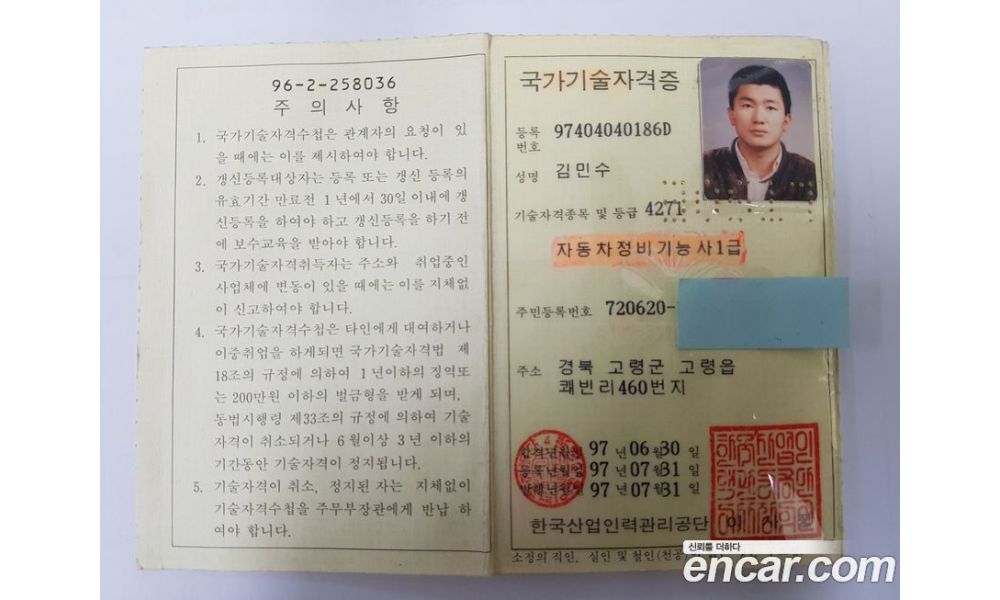 96-2-258036
주 의 사 항
1. 국가기술자격수첩은 관계자의 요청이 있
을 때에는 이를 제시하여야 합니다.
2. 갱신등록대상자는 등록 또는 갱신 등록의
유효기간 만료전 1년에서 30일 이내에 갱
신등록을 하여야 하고 갱신등록을 하기 전
에 보수교육을 받아야 합니다.
3. 국가기술자격취득자는 주소와 취업중인
사업체에 변동이 있을 때에는 이를 지체없
이 신고하여야 합니다.
4. 국가기술자격수첩은 타인에게 대여하거나
이중취업을 하게되면 국가기술자격법 제
18조의 규정에 의하여 1년이하의 징역또
는 200만원 이하의 벌금형을 받게 되며,
동법시행령 제33조의 규정에 의하여 기술
자격이 취소되거나 6월이상 3년 이하의
기간동안 기술자격이 정지됩니다.
5. 기술자격이 취소, 정지된 자는 지체없이
기술자격수첩을 주무부장관에게 반납 하
여야 합니다.
국가기술자격증
등록
번호 97404040186D
성명 김민수
기술자격종목 및 등급 4271
자동차정비기능사1급
주민등록번호 720620-
주소 경북 고령군 고령읍
쾌빈리460번지
합격년월일 97 년 06 월 30 일
등록년월일 97 년 07 월 31 일
발행년월일 97 년 07 월 31 일
한국산업인력관리공단 이사장
소정의 직인, 실인 및 철인(천공)
신뢰를 더하다
encar.com